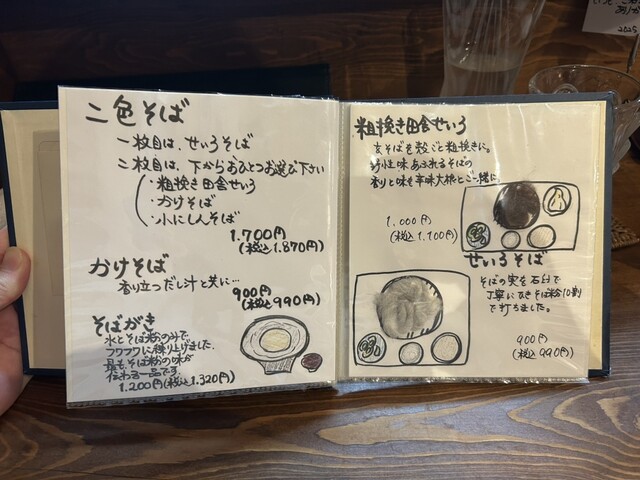 二色そば
一枚目は、せいろそば
二枚目は、下からおひとつお選び下さい
・粗挽き田舎せいろ
・かけそば
・小にしんそば
1.700円
(税込1.870円)
かけそば
香り立つだし汁と共に…
900円
(税込990円)
そばがき
水とそば粉のみで、
フワフワに練り上げました。
最も、そば粉の味が
伝わる一品です
1.200円(税込1.320円)
粗挽き田舎せいろ
玄そばを殻ごと粗挽きに。
野性味あふれるそばの
香りと味を辛味大根とご一緒に。
1.000円
(税込1.100円)
せいろそば
そばの実を石臼で
丁寧にひきそば粉10割
で打ちました。
900円
(税込990円)
2025